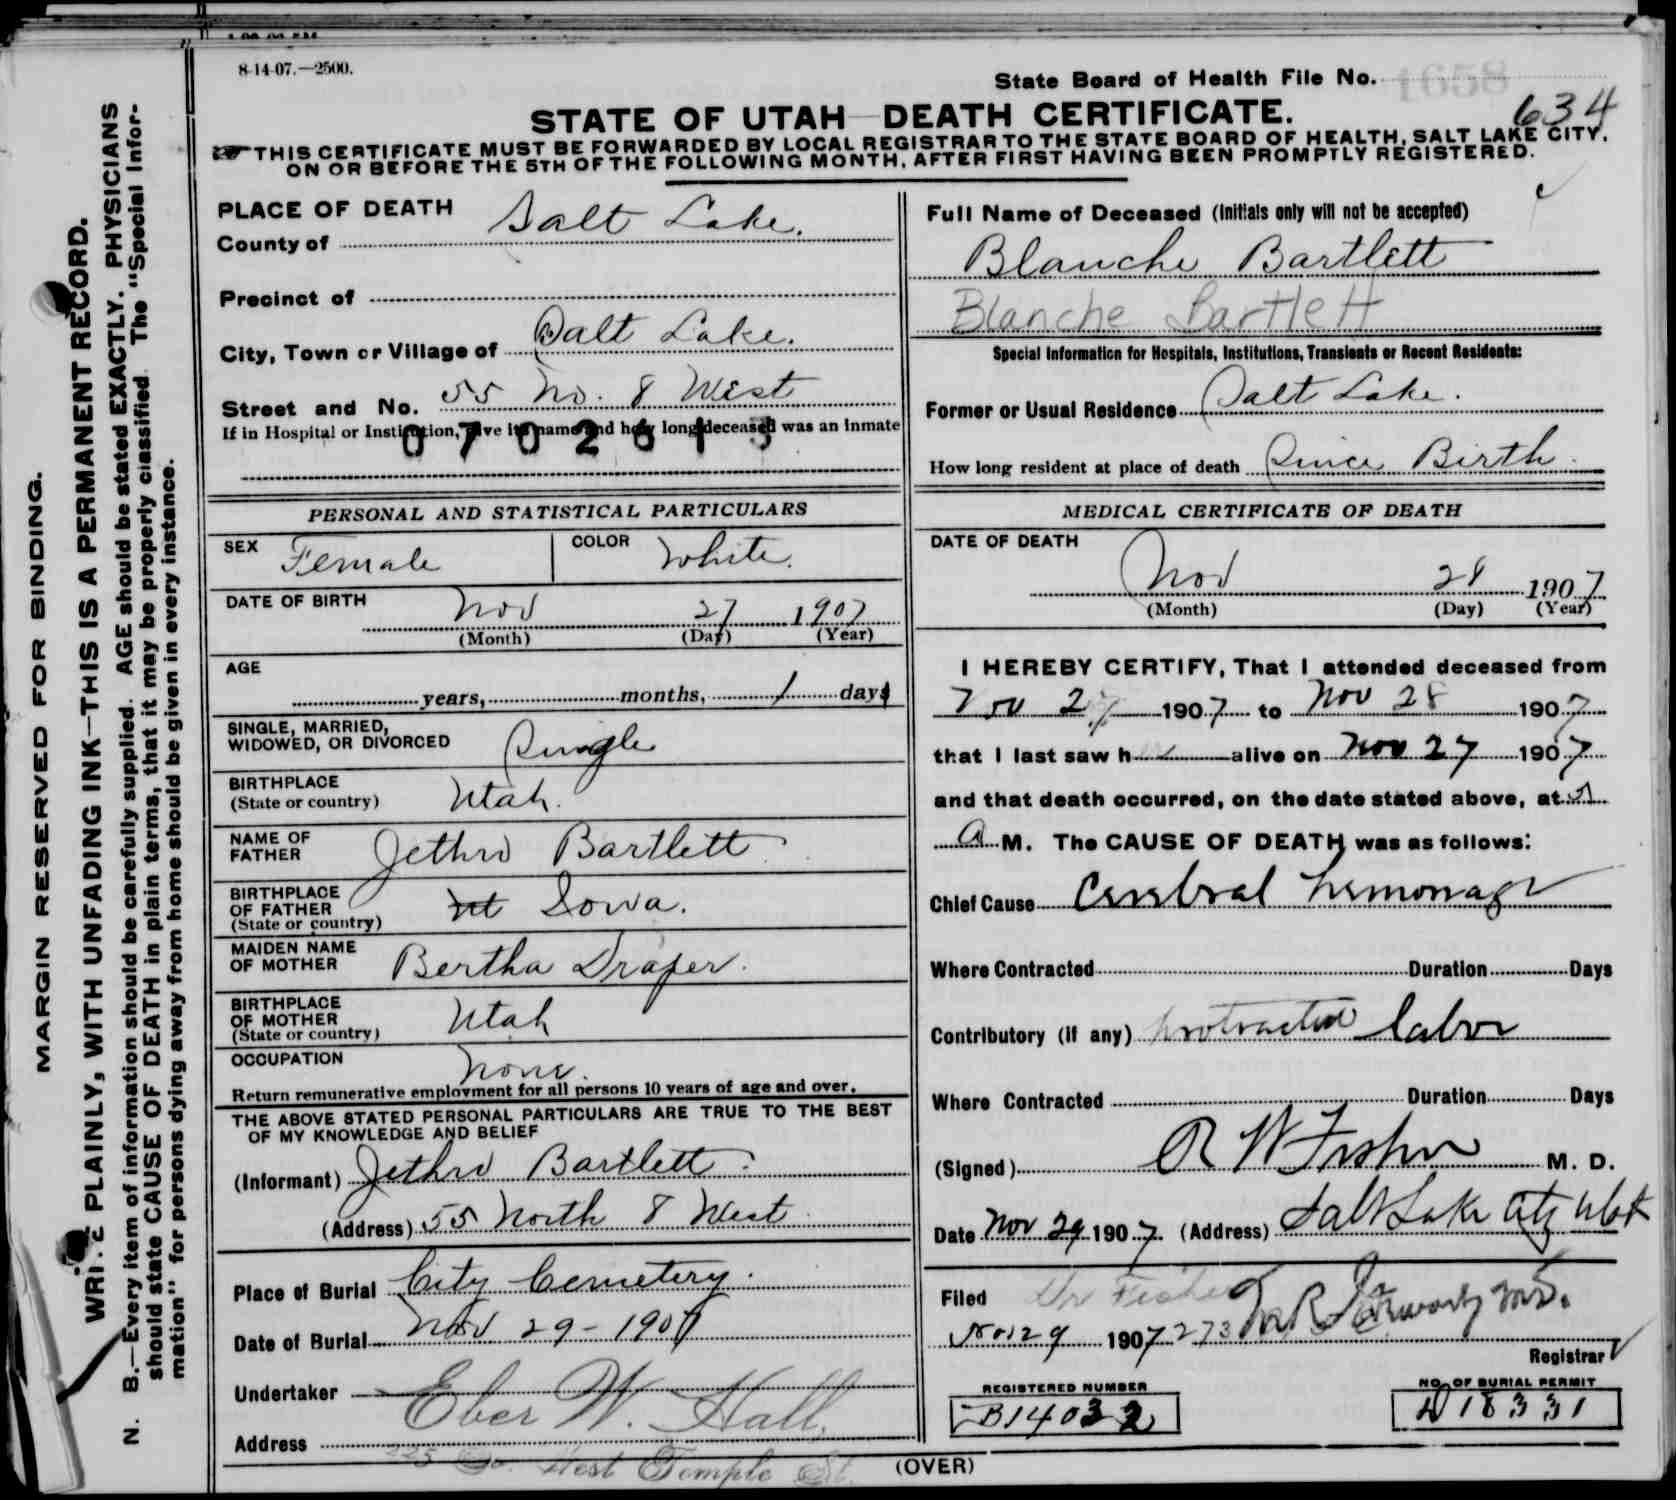 8-14-07.—2500.
State Board of Health File No. 1658
634
STATE OF UTAH—DEATH CERTIFICATE.
THIS CERTIFICATE MUST BE FORWARDED BY LOCAL REGISTRAR TO THE STATE BOARD OF HEALTH, SALT LAKE CITY,
ON OR BEFORE THE 5TH OF THE FOLLOWING MONTH, AFTER FIRST HAVING BEEN PROMPTLY REGISTERED.
MARGIN RESERVED FOR BINDING.
WRITE PLAINLY, WITH UNFADING INK—THIS IS A PERMANENT RECORD.
N. B.—Every item of information should be carefully supplied. AGE should be stated EXACTLY. PHYSICIANS
should state CAUSE OF DEATH in plain terms, that it may be properly classified. The "Special Infor-
mation" for persons dying away from home should be given in every instance.
PLACE OF DEATH
County of Salt Lake.
Precinct of
City, Town or Village of Salt Lake.
Street and No. 55 No. 8 West
If in Hospital or Institution, give its name and how long deceased was an Inmate
0702613
PERSONAL AND STATISTICAL PARTICULARS
SEX Female COLOR White.
DATE OF BIRTH Nov 27 1907
(Month) (Day) (Year)
AGE
years, months, 1 days
SINGLE, MARRIED,
WIDOWED, OR DIVORCED Single
BIRTHPLACE
(State or country) Utah.
NAME OF
FATHER Jethro Bartlett
BIRTHPLACE
OF FATHER
(State or country) Ut Iowa.
MAIDEN NAME
OF MOTHER Bertha Draper.
BIRTHPLACE
OF MOTHER
(State or country) Utah
OCCUPATION None.
Return remunerative employment for all persons 10 years of age and over.
THE ABOVE STATED PERSONAL PARTICULARS ARE TRUE TO THE BEST
OF MY KNOWLEDGE AND BELIEF
(Informant) Jethro Bartlett.
(Address) 55 North 8 West
Place of Burial City Cemetery.
Date of Burial Nov 29 - 1907
Undertaker Eber W. Hall.
Address 225 So. West Temple St.
Full Name of Deceased (Initials only will not be accepted)
Blanche Bartlett
Blanche Bartlett
Special Information for Hospitals, Institutions, Transients or Recent Residents:
Former or Usual Residence Salt Lake.
How long resident at place of death Since Birth.
MEDICAL CERTIFICATE OF DEATH
DATE OF DEATH
Nov 28 1907
(Month) (Day) (Year)
I HEREBY CERTIFY, That I attended deceased from
Nov 27 1907 to Nov 28 1907
that I last saw h alive on Nov 27 1907
and that death occurred, on the date stated above, at
a M. The CAUSE OF DEATH was as follows:
Chief Cause Cerebral hemorrage
Where Contracted Duration Days
Contributory (if any) protracted labor
Where Contracted Duration Days
(Signed) R W Fisher M. D.
Date Nov 29 1907. (Address) Salt Lake City Utah
Filed Dr Fisher
Nov 29 1907 273
Registrar
REGISTERED NUMBER
B14032
NO. OF BURIAL PERMIT
D18331
(OVER)